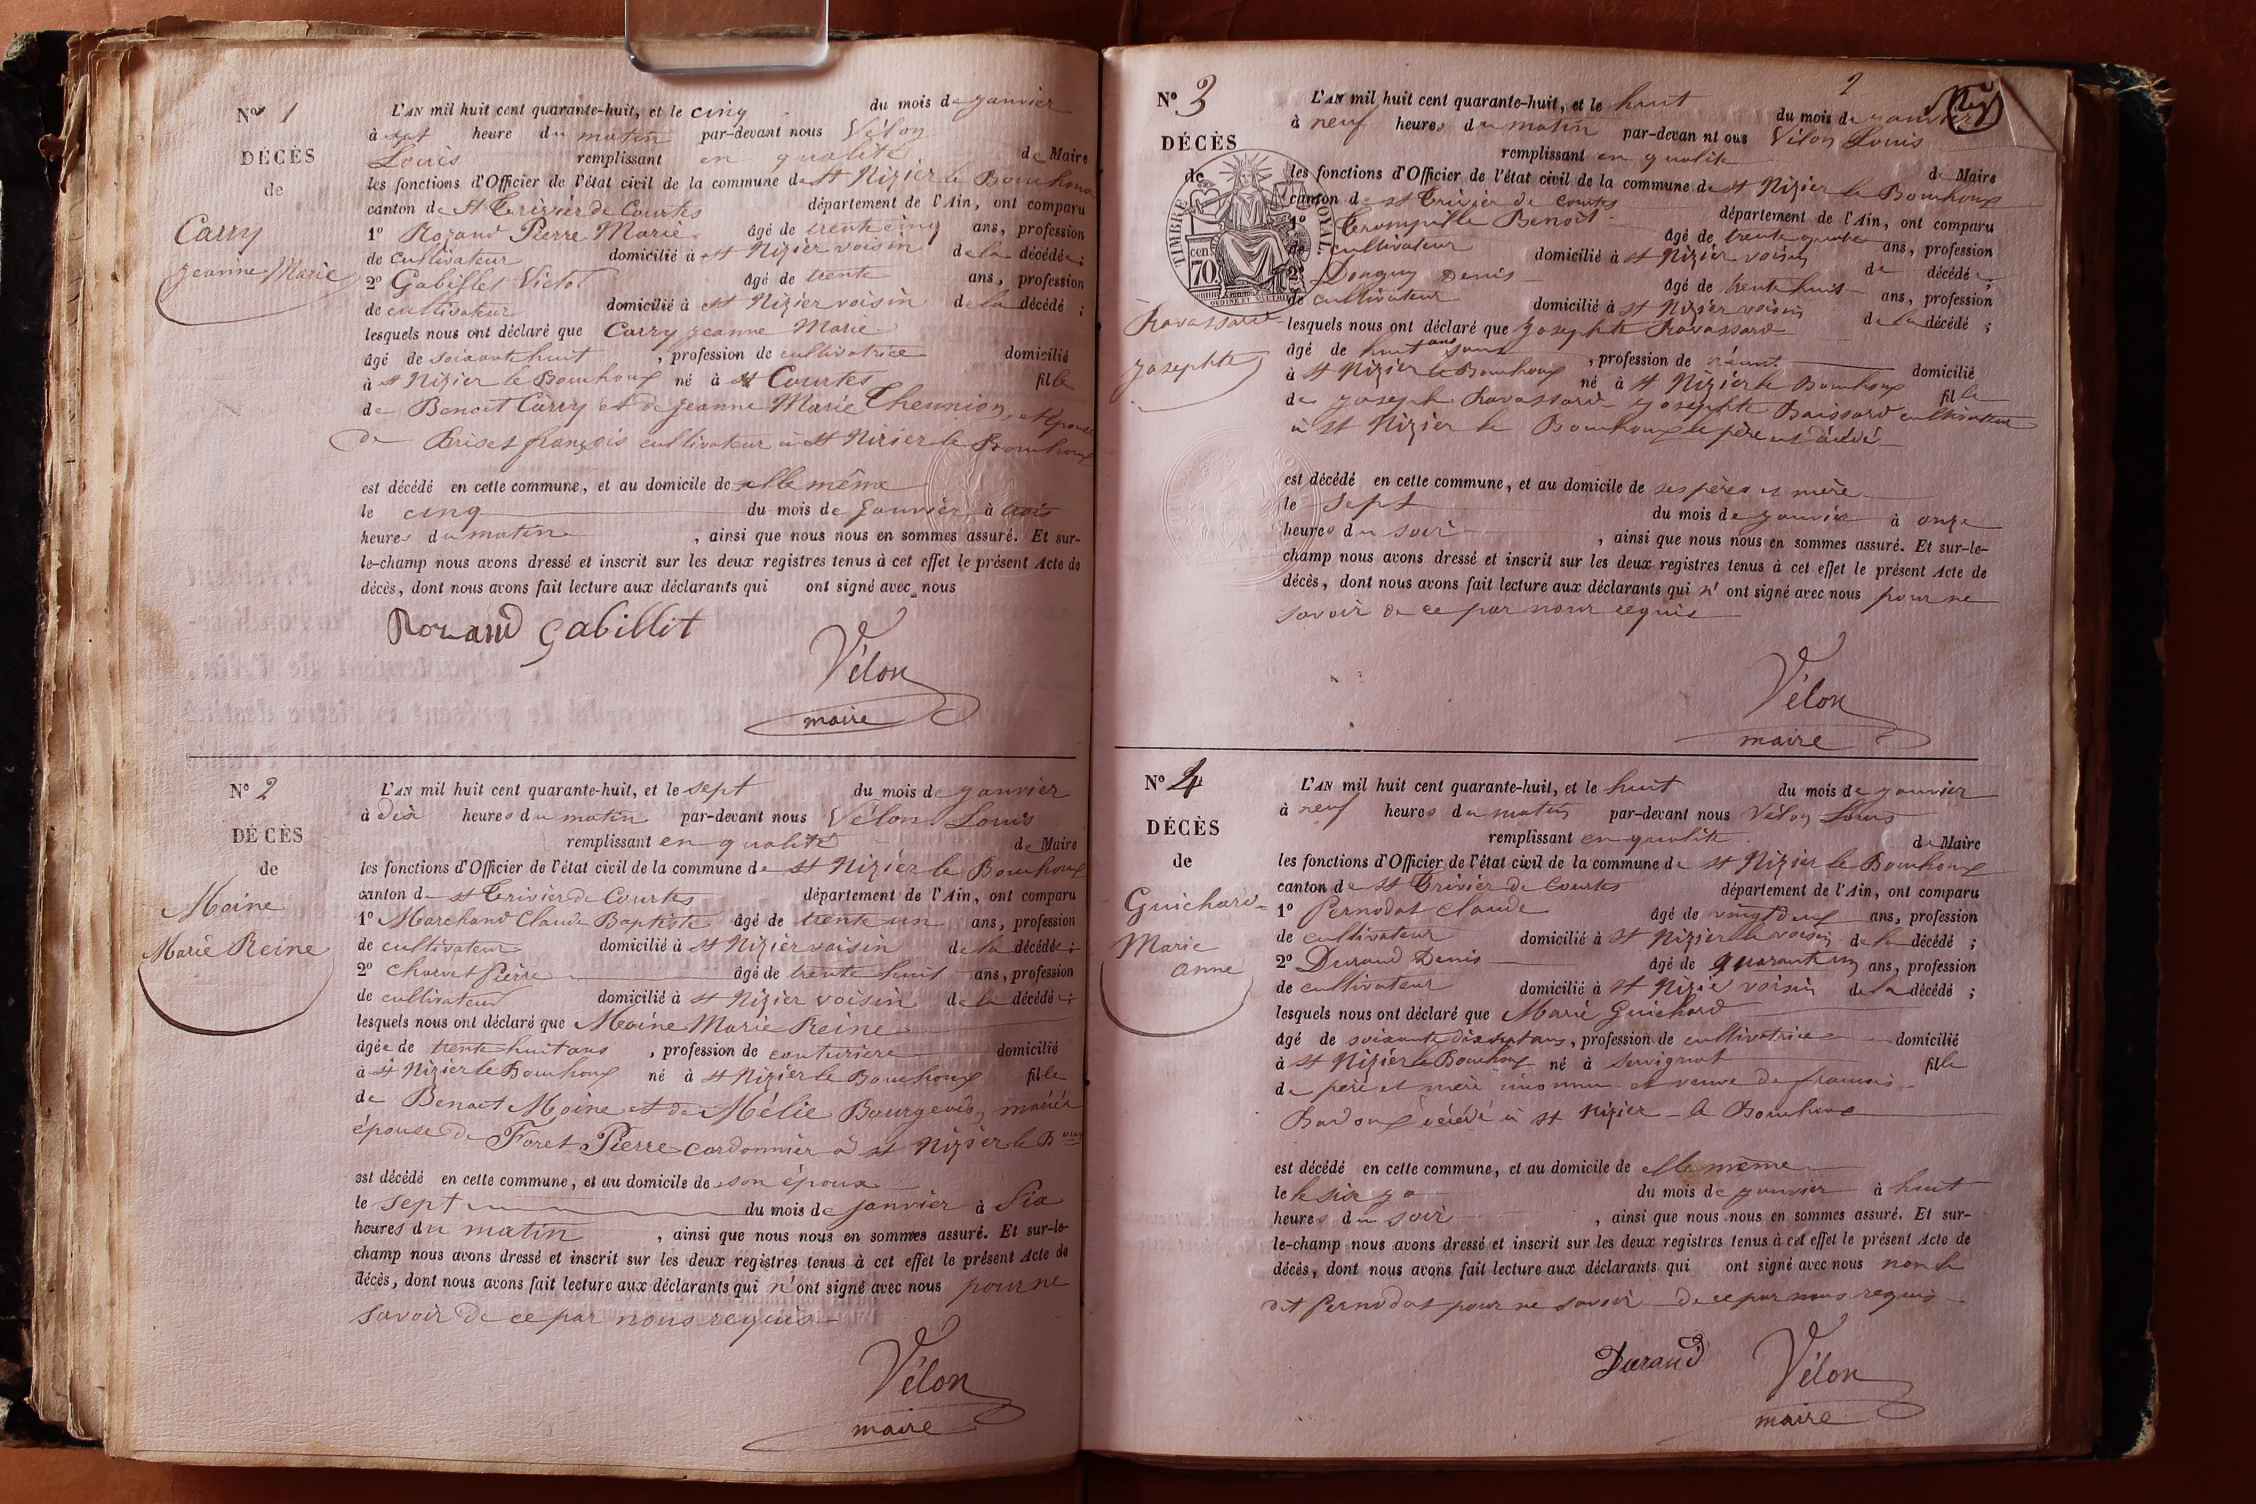 No 1
DÉCÈS
de
Carry
Jeanne Marie
L'AN mil huit cent quarante-huit, et le cinq du mois de janvier
à sept heure du matin par-devant nous Vélon
Louis remplissant en qualité de Maire
les fonctions d'Officier de l'état civil de la commune de St Nizier le Bouchoux
canton de St Trivier de Courtes département de l'Ain, ont comparu
1º Rozand Pierre Marie âgé de trente cinq ans, profession
de cultivateur domicilié à St Nizier voisin de la décédée ;
2º Gabillet Victor âgé de trente ans, profession
de cultivateur domicilié à St Nizier voisin de la décédé ;
lesquels nous ont déclaré que Carry jeanne Marie
âgé de soixante huit , profession de cultivatrice domicilié
à St Nizier le Bouchoux né à St Courtes fille
de Benoit Carry et de jeanne Marie Chesnion, et épouse
de Briset françois cultivateur à St Nizier le Bouchoux
est décédé en cette commune, et au domicile de elle même
le cinq du mois de Janvier à trois
heures du matin , ainsi que nous nous en sommes assuré. Et sur-
le-champ nous avons dressé et inscrit sur les deux registres tenus à cet effet le présent Acte de
décès, dont nous avons fait lecture aux déclarants qui ont signé avec nous
Rozand Gabillit
Vélon
maire
No 2
DÉCÈS
de
Moine
Marie Reine
L'AN mil huit cent quarante-huit, et le sept du mois de janvier
à dix heures du matin par-devant nous Vélon Louis
remplissant en qualité de Maire
les fonctions d'Officier de l'état civil de la commune de St Nizier le Bouchoux
canton de St Trivier de Courtes département de l'Ain, ont comparu
1º Marchand Claude Baptiste âgé de trente un ans, profession
de cultivateur domicilié à St Nizier voisin de la décédée ;
2º Charvet Pierre âgé de trente huit ans, profession
de cultivateur domicilié à St Nizier voisin de la décédé ;
lesquels nous ont déclaré que Moine Marie Reine
âgée de trente huit ans , profession de couturiere domicilié
à St Nizier le Bouchoux né à St Nizier le Bouchoux fille
de Benoit Moine et de Mélie Bourgeois, mariée
épouse de Foret Pierre cordonnier à St Nizier le Boux
est décédé en cette commune, et au domicile de son époux
le sept du mois de janvier à Six
heures du matin , ainsi que nous nous en sommes assuré. Et sur-le-
champ nous avons dressé et inscrit sur les deux registres tenus à cet effet le présent Acte de
décès, dont nous avons fait lecture aux déclarants qui n'ont signé avec nous pour ne
savoir de ce par nous requis
Vélon
maire
No 3
DÉCÈS
de
TIMBRE ROYAL
70 cen
Ravassard
Josephte
L'AN mil huit cent quarante-huit, et le huit du mois de janvier
à neuf heures du matin par-devan nt ous Vélon Louis
remplissant en qualité de Maire
les fonctions d'Officier de l'état civil de la commune de St Nizier le Bouchoux
canton de St Trivier de Courtes département de l'Ain, ont comparu
1º Trompille Benoit âgé de trente quatre ans, profession
de cultivateur domicilié à St Nizier voisin de décédé ;
2º Donguy Denis âgé de trente huit ans, profession
de cultivateur domicilié à St Nizier voisin de la décédé ;
lesquels nous ont déclaré que Josephte Ravassard
âgé de huit ans , profession de néant domicilié
à St Nizier le Bouchoux né à St Nizier le Bouchoux fille
de joseph Ravassard et josephte Baissard cultivateur
à St Nizier le Bouchoux le père est décédé
est décédé en cette commune, et au domicile de ses pères et mère
le sept du mois de janvier à onze
heures du soir , ainsi que nous nous en sommes assuré. Et sur-le-
champ nous avons dressé et inscrit sur les deux registres tenus à cet effet le présent Acte de
décès, dont nous avons fait lecture aux déclarants qui n' ont signé avec nous pour ne
savoir de ce par nous requis
Vélon
maire
No 4
DÉCÈS
de
Guichard
Marie
anne
L'AN mil huit cent quarante-huit, et le huit du mois de janvier
à neuf heures du matin par-devant nous Vélon Louis
remplissant en qualité de Maire
les fonctions d'Officier de l'état civil de la commune de St Nizier le Bouchoux
canton de St Trivier de Courtes département de l'Ain, ont comparu
1º Pernodat Claude âgé de vingt deux ans, profession
de cultivateur domicilié à St Nizier le voisin de la décédé ;
2º Durand Denis âgé de quarante un ans, profession
de cultivateur domicilié à St Nizier voisin de la décédé ;
lesquels nous ont déclaré que Marie Guichard
âgé de soixante dix sept ans, profession de cultivatrice domicilié
à St Nizier le Bouchoux né à Servignat fille
de père et mère inconnu et veuve de francois
Bardoux décédé à St Nizier le Bouhoux
est décédé en cette commune, et au domicile de elle même
le le six du mois de janvier à huit
heures du soir , ainsi que nous nous en sommes assuré. Et sur-
le-champ nous avons dressé et inscrit sur les deux registres tenus à cet effet le présent Acte de
décès, dont nous avons fait lecture aux déclarants qui ont signé avec nous non le
dit Pernodat pour ne savoir de ce par nous requis
Durand Vélon
maire